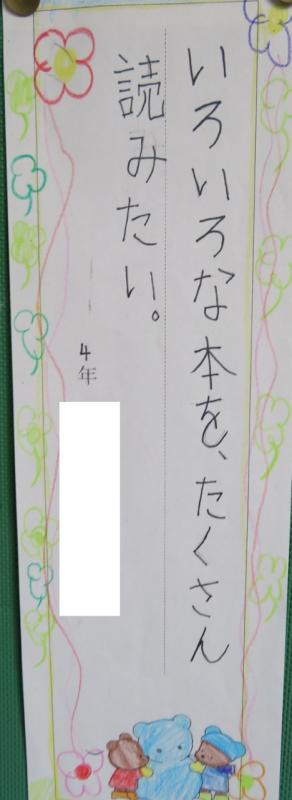 いろいろな本を、たくさん
読みたい。
4年